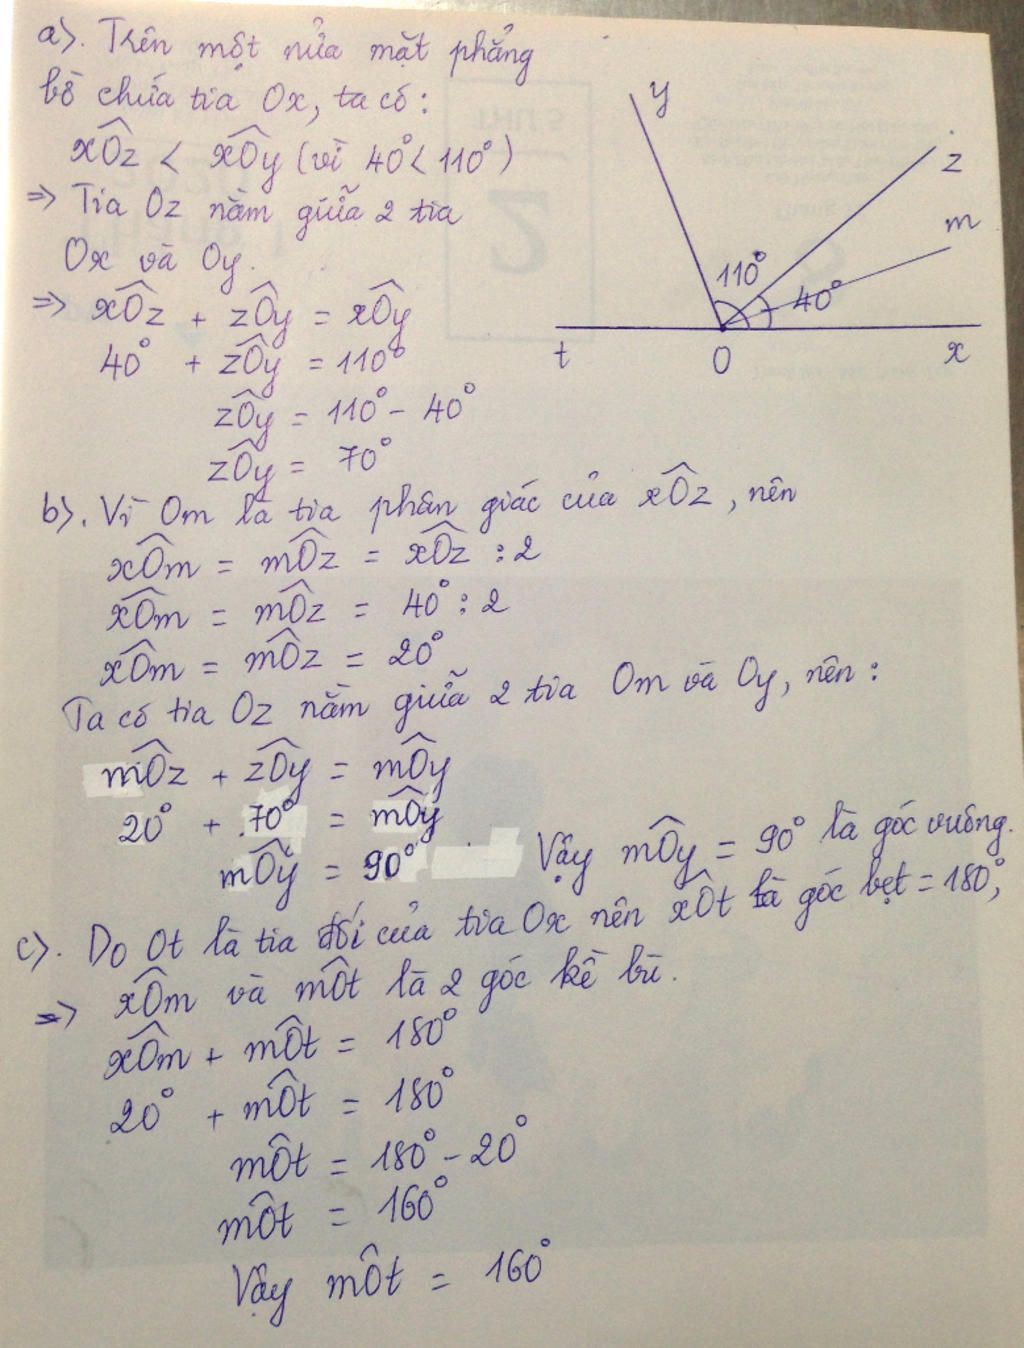 a). Trên một nửa mặt phẳng
bờ chứa tia Ox, ta có:
xÔz < xÔy (vì 40° < 110°)
=> Tia Oz nằm giữa 2 tia
Ox và Oy.
=> xÔz + zÔy = xÔy
40° + zÔy = 110°
zÔy = 110° - 40°
zÔy = 70°
y
z
m
110°
40°
t
O
x
b). Vì Om là tia phân giác của xÔz, nên
xÔm = mÔz = xÔz : 2
xÔm = mÔz = 40° : 2
xÔm = mÔz = 20°
Ta có tia Oz nằm giữa 2 tia Om và Oy, nên:
mÔz + zÔy = mÔy
20° + 70° = mÔy
mÔy = 90°
Vậy mÔy = 90° là góc vuông.
c). Do Ot là tia đối của tia Ox nên xÔt là góc bẹt = 180°,
=> xÔm và mÔt là 2 góc kề bù.
xÔm + mÔt = 180°
20° + mÔt = 180°
mÔt = 180° - 20°
mÔt = 160°
Vậy mÔt = 160°